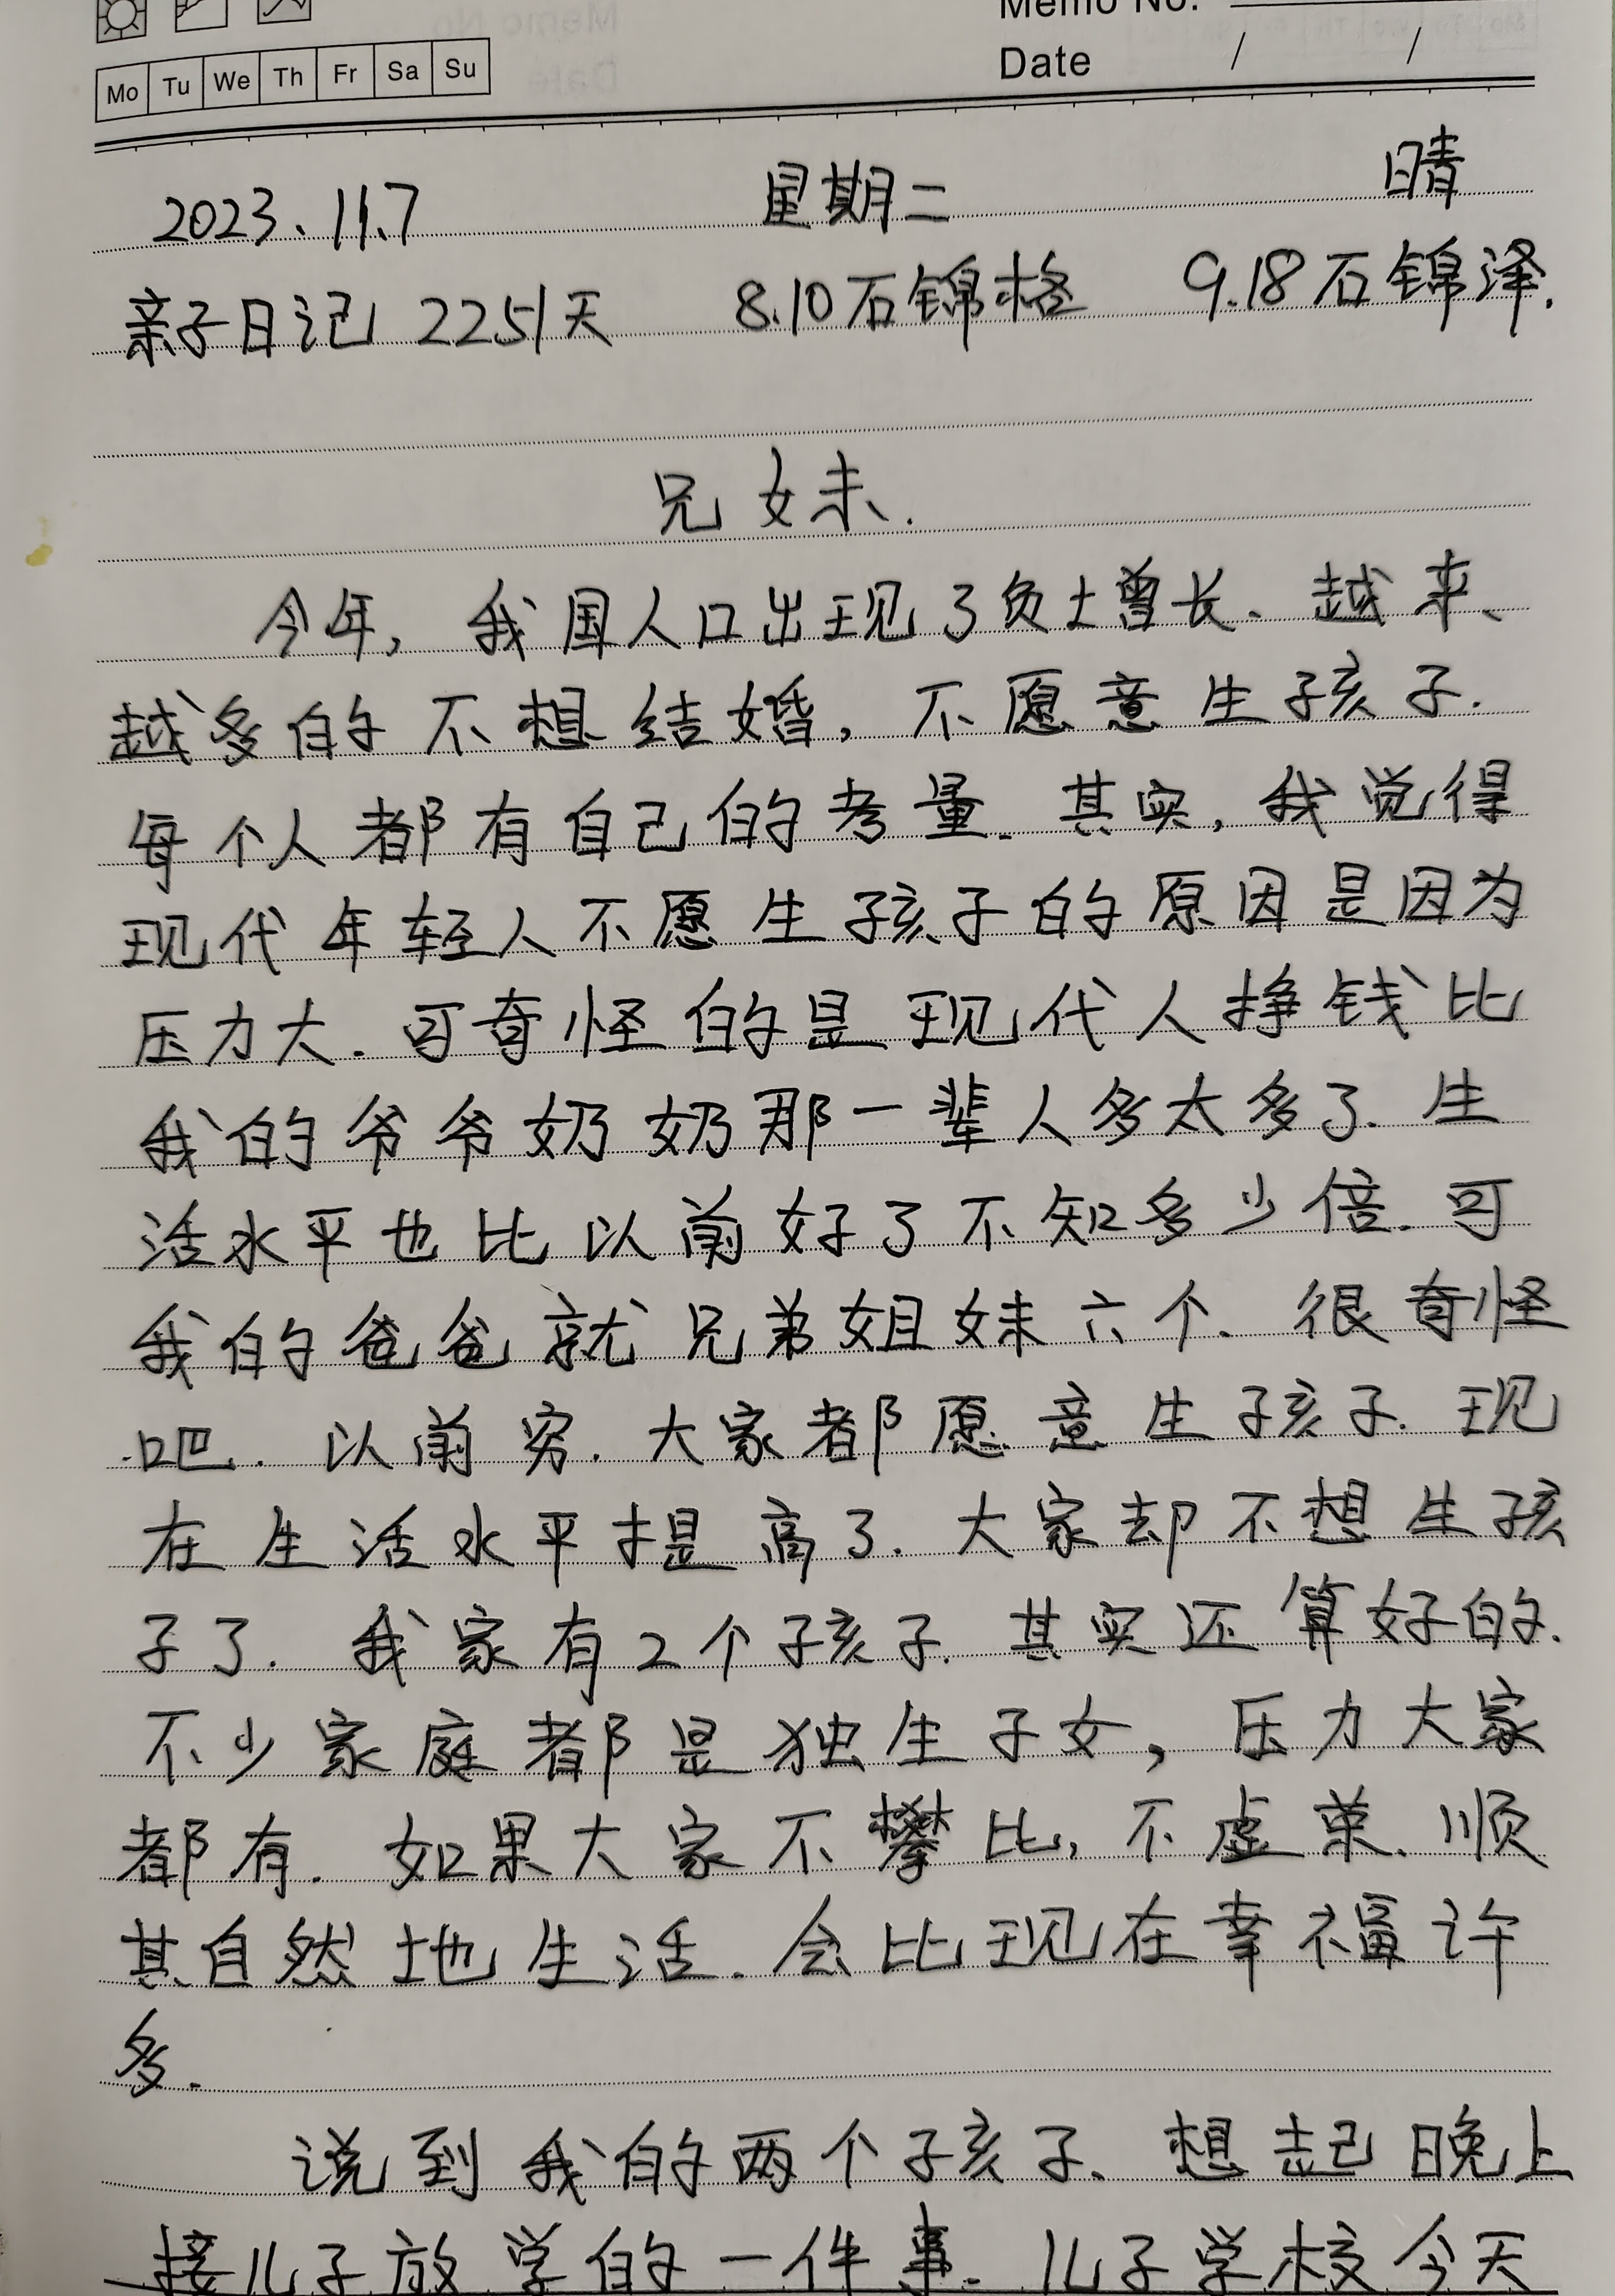 Memo No.
Mo Tu We Th Fr Sa Su
Date / /
2023、11.7 星期二 晴
亲子日记 2251天 8.10石锦格 9.18石锦泽.
兄妹.
今年,我国人口出现了负增长、越来、
越多的不想结婚,不愿意生孩子.
每个人都有自己的考量.其实,我觉得
现代年轻人不愿生孩子的原因是因为
压力大.可奇怪的是现代人挣钱比
我的爷爷奶奶那一辈人多太多了.生
活水平也比以前好了不知多少倍.可
我的爸爸就兄弟姐妹六个.很奇怪
吧.以前穷.大家都愿意生孩子.现
在生活水平提高了.大家却不想生孩
子了.我家有2个孩子.其实还算好的.
不少家庭都是独生子女,压力大家
都有.如果大家不攀比,不虚荣.顺
其自然地生活.会比现在幸福许
多.
说到我的两个孩子、想起晚上
接儿子放学的一件事.儿子学校今天